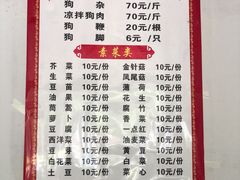 狗 杂 70元/斤
凉拌狗肉 70元/斤
狗 鞭 20元/根
狗 脚 6元/只
素菜类
芥菜 10元/份 金针菇 10元/份
生菜 10元/份 凤尾菇 10元/份
豆苗 10元/份 薄荷 10元/份
油菜 10元/份 花生 10元/份
茼蒿 10元/份 腐竹 10元/份
萝卜 10元/份 香菜 10元/份
豆腐 10元/份 一点红 10元/份
西洋菜 10元/份 油麦菜 10元/份
豆芽 10元/份 黄豆芽 10元/份
白花菜 10元/份 白菜 10元/份
土豆 10元/份 菜心 10元/份